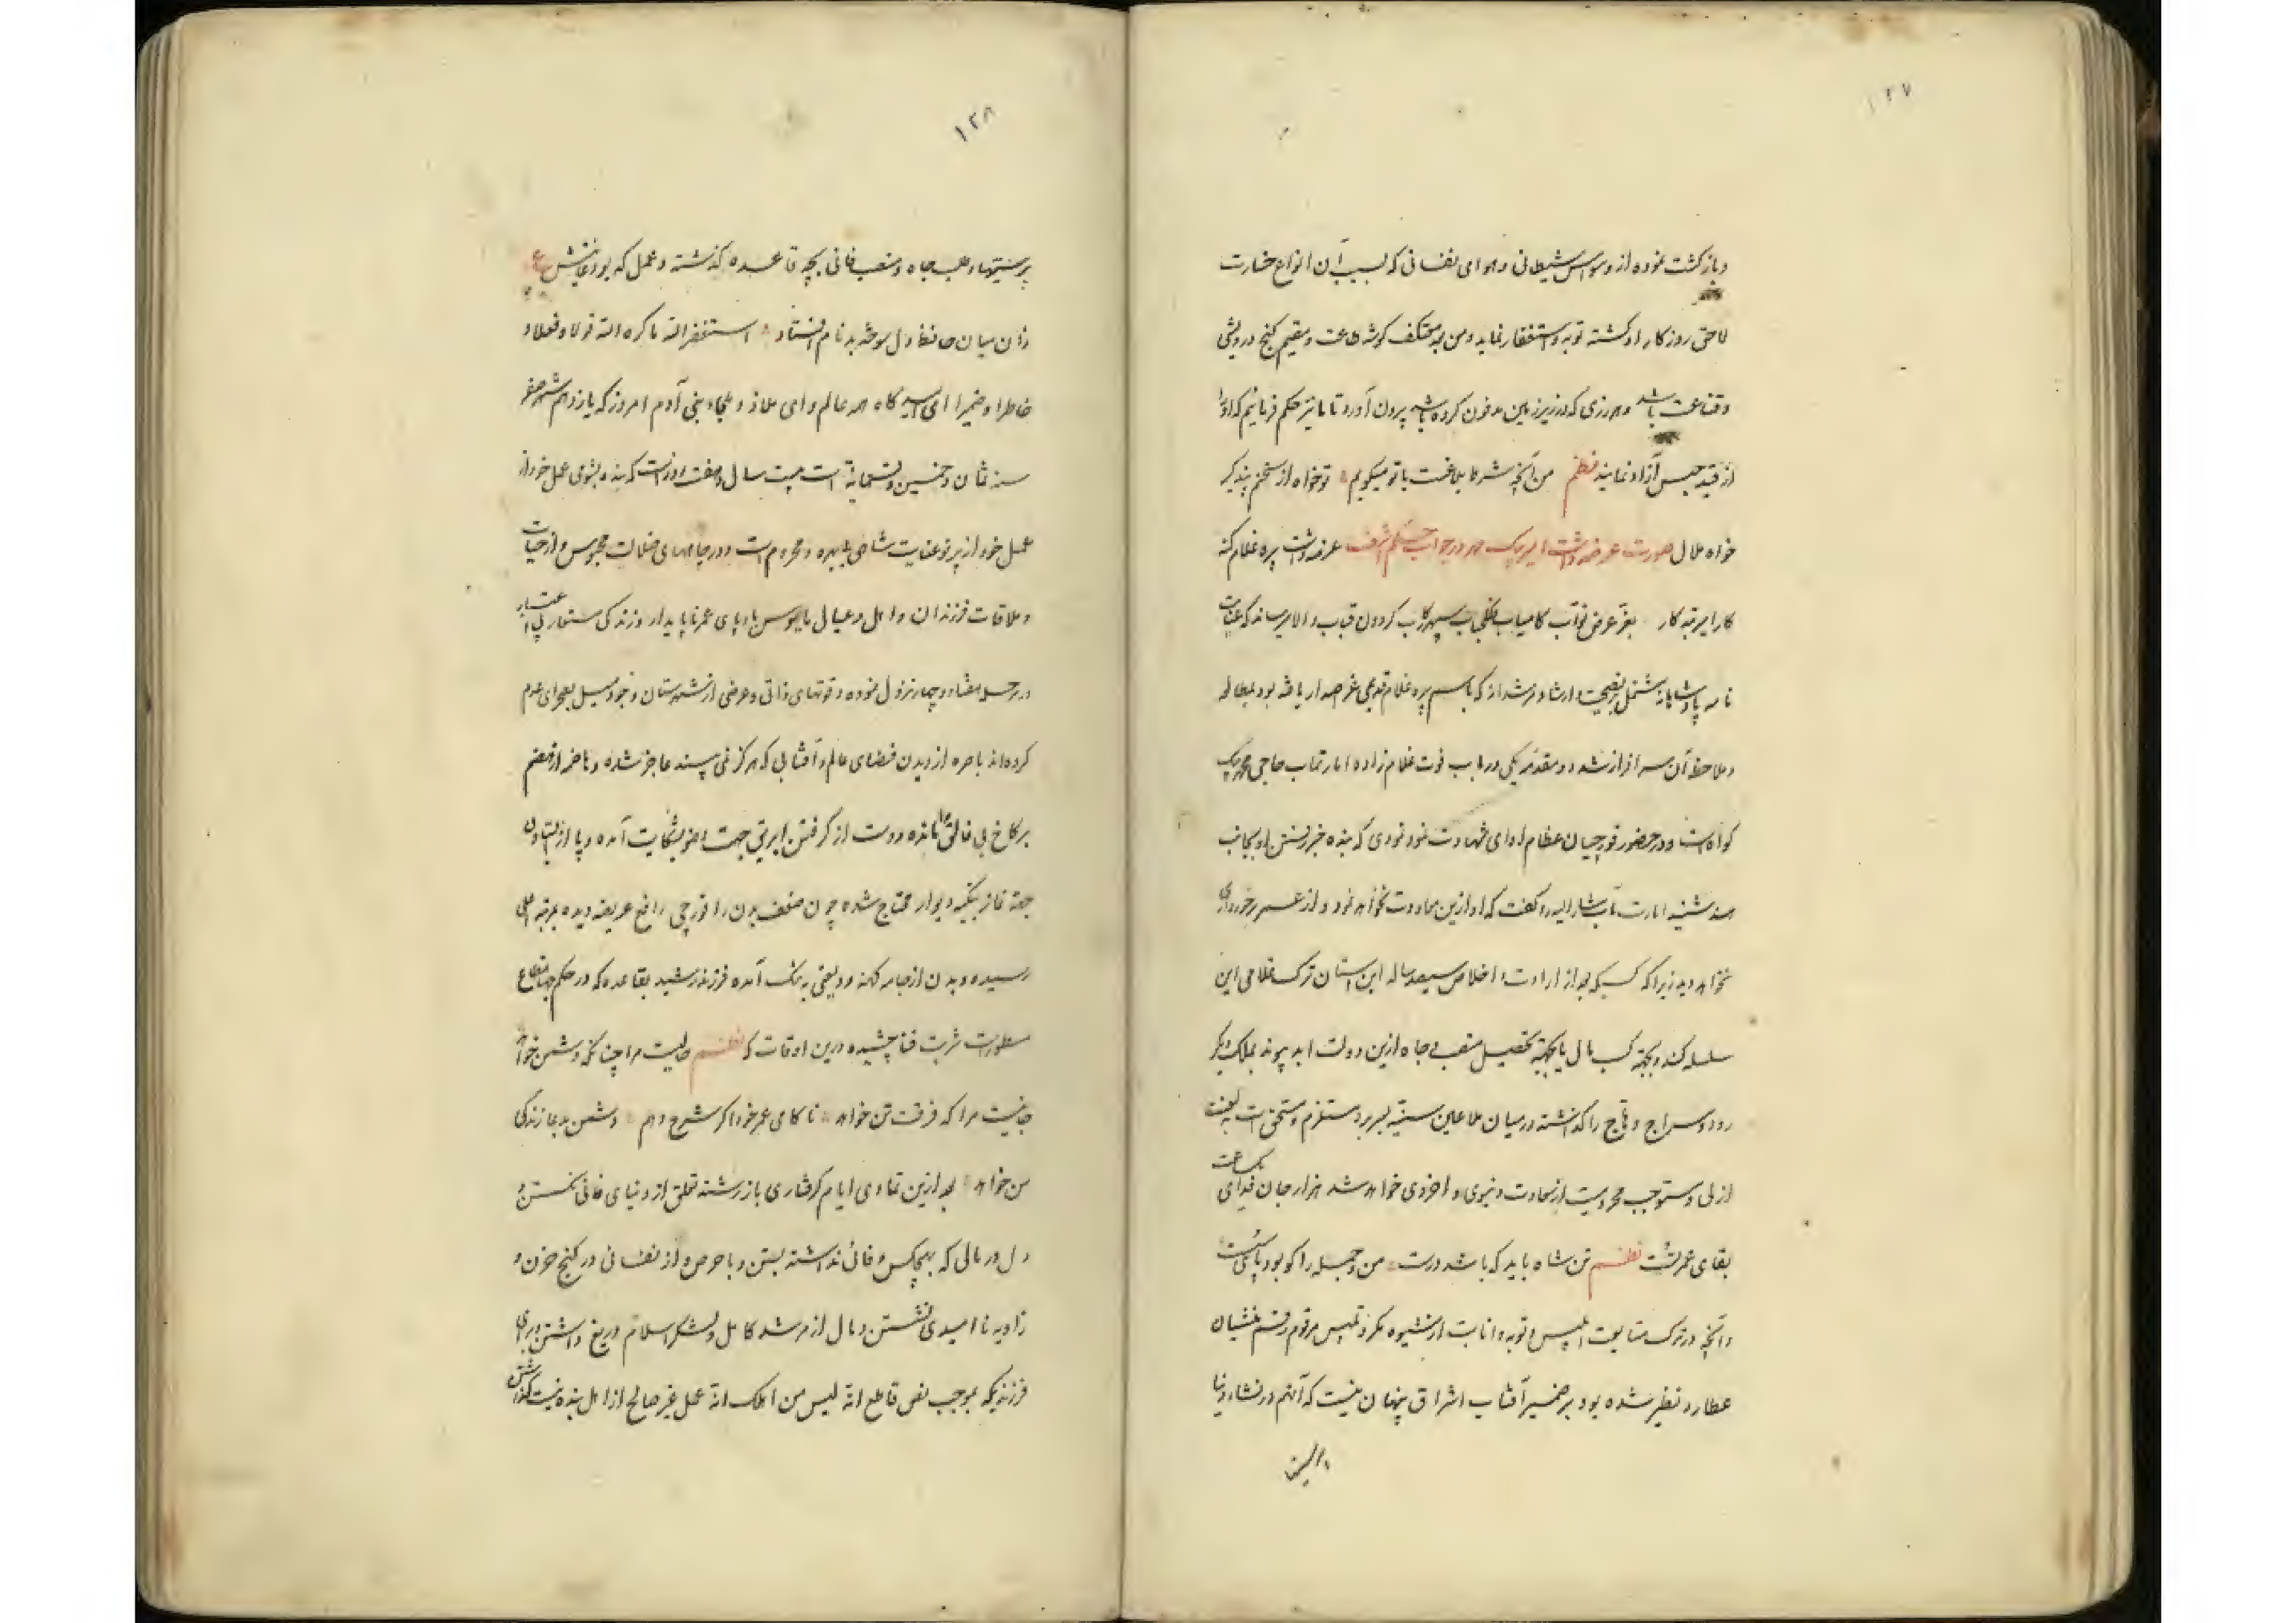 ۱۲۷
و بازگشت نموده از وسواس شیطانی و هوای نفسانی که بسبب آن انواع خسارت
لاحق روزگار او گشته توبه و استغفار نماید و من بعد معتکف گوشه طاعت و مقیم کنج درویشی
و قناعت باشد و هر زری که در زیر زمین مدفون کرده باشد بیرون آورد تا ما نیز حکم فرمائیم که او را
از قید حبس آزاد نمایند نظم من آنچه شرط بلاغست با تو میگویم تو خواه از سخنم پند گیر
خواه ملال صورت عرضه داشت در جواب حکم اشرف عرضه داشت پره غلام کنه
کار ابرتبه کار بعز عرض نواب کامیاب فلک جناب سپهر رکاب گردون قباب والا میرساند که عنایت
نامه پادشاهانه مشتمل بر نصیحت و ارشاد مرشدانه که باسم پره غلام قدیمی عز اصدار یافته بود بمطالعه
و ملاحظه آن سرافراز شد و مقدمه یکی در باب فوت غلام زاده امارتمآب حاجی محمد بیک
گواهست و در حضور قورچیان عظام ادای شهادت نمود نودی که بنده خبر رفتن او بجانب
هند شنید امارت مآب مشارالیه را گفت که او ازین معاودت نخواهد نمود و از عمر برخورداری
نخواهد دید زیرا که کسیکه بعد از ارادت و اخلاص سیصد ساله این آستان ترک غلامی این
سلسله کند و بجهة کسب مال یا بجهة تحصیل منصب و جاه ازین دولت ابد پیوند بملک دیگر
رود و سراج و تاج را گذاشته در میان ملاعین سنیه بسر برد مستلزم و مستحق است به لعنت
ازلی و مستوجب محرومیت از سعادت دنیوی و اخروی خواهد شد هزار جان فدای یکساعت
بقای عمر تست نظم تن شاه باید که باشد درست من و جمله را کو بود پای سست
و آنچه در ترک متابعت ابلیس و توبه و انابت از شیوه مکر و تلبیس مرقوم رقم منشیان
عطارد نظیر شده بود بر ضمیر آفتاب اشراق پنهان نیست که آنهم در نشاء دنیا
۱۲۸
پرستیها و طلب جاه و منصب فانی بچه قاعده گذشته و عمل که بود غایتش ع
زان میان حافظ دل سوخته بدنام افتاد استغفر الله ما کره الله قولا و فعلا و
خاطرا و ضمیرا ای امید گاه اهل عالم و ای ملاذ و ملجاء بنی آدم امروز که یازدهم شهر صفر
سنه ثمان و خمسین و تسعمایة است بیست سال و هفت روز است که بنده بشومی عمل خود از
عمل خود از پرتو عنایت شاهی بی بهره و محروم است و در چاههای ضلالت محبوس و از حیات
و ملاقات فرزندان و اهل و عیال مأیوس با پای عمر ناپایدار و زندگی مستعار بی اعتبار
در مرحله هفتاد و چهار نزول نموده و قوتهای ذاتی و عرضی از شهرستان وجود میل بصحرای عدم
کرده اند باصره از دیدن فضای عالم و آفتابی که هرگز نمی پسند عاجز شده و باضمه از هضم
بر کاخ بی فالق مانده و دست از گرفتن ابریق جهت وضو بشکایت آمده و پا از ایستادن
جهة نماز بتکیه دیوار محتاج شده چون ضعف بدن را قورچی رافع عریضه دیده بمرتبه اعلی
رسیده و بدن از جامه کهنه و دلقی به تنگ آمده فرزند رشید بقاعده که در حکم جهانمطاع
مسطور است شربت فنا چشیده درین اوقات که نظم حالیست مرا چنانکه دشمن خواهد
جانیست مرا که فرقت تن خواهد ناکامی عمر خود اگر شرح دهم دشمن بدعا زندگی
من خواهد بعد ازین تمادی ایام گرفتاری باز رشته تعلق از دنیای فانی نگسستن و
دل در مالی که بهیچکس وفائی نداشته بستن و با حرص و آز نفسانی در کنج حزن و
زاویه ناامیدی نشستن و مال از مرشد کامل و لشکر اسلام دریغ داشتن و برای
فرزندیکه بموجب نص قاطع انه لیس من اهلک انه عمل غیر صالح از اهل بنده نیست گذاشتن